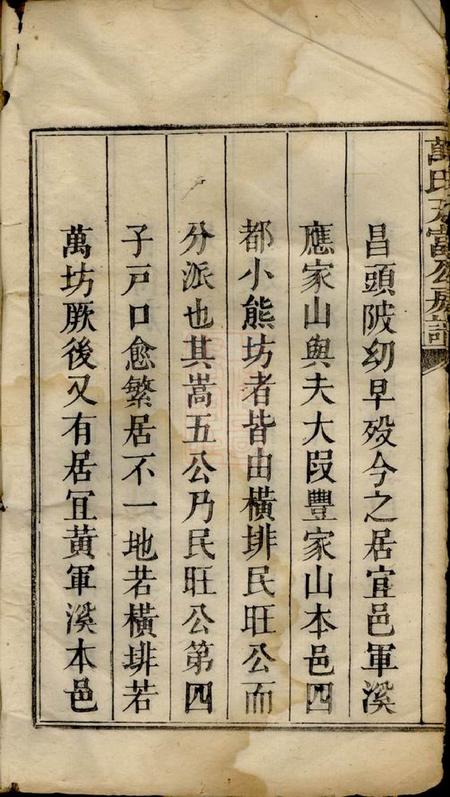 昌頭陂幼早殁今之居宜邑軍溪
應家山與夫大段豐家山本邑四
都小熊坊者皆由橫排民旺公而
分派也其嵩五公乃民旺公第四
子戶口愈繁居不一地若橫排若
萬坊厥後又有居宜黃軍溪本邑